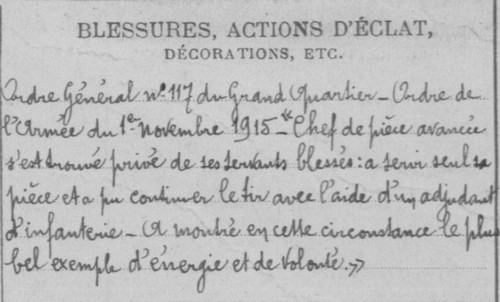 BLESSURES, ACTIONS D'ÉCLAT,
DÉCORATIONS, ETC.
Ordre Général nº 117 du Grand Quartier - Ordre de
l'Armée du 1er Novembre 1915 - "Chef de pièce avancée
s'est trouvé privé de ses servants blessés: a servi seul sa
pièce et a pu continuer le tir avec l'aide d'un adjudant
d'infanterie - A montré en cette circonstance le plus
bel exemple d'énergie et de volonté."